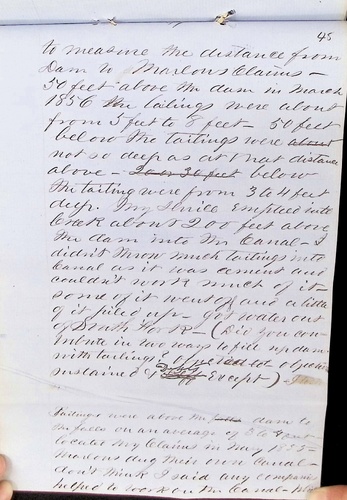 45
to measure the distance from
Dam to Marlous Claims -
50 feet above the dam in March
1856 the tailings were about
from 5 feet to 8 feet - 50 feet
below the tailings were about
not so deep as at that distance
above - 20 or 30 feet below
the tailing were from 3 to 4 feet
deep. My sluice emptied into
Creek about 200 feet above
the dam into the Canal - I
didn't throw much tailings into
Canal as it was cement and
couldn't work much of it -
some of it went off and a little
of it piled up - got water out
of South Fork - (Did you con
tribute in two ways to fill up dam
with tailings? objected
sustained Except) -
Tailings were above the dam to
the falls on an average of 3 to 4 feet
located my Claims in May 1855 -
Marlous dug their own Canal -
don't think I said any companies
helped to work on the Canal